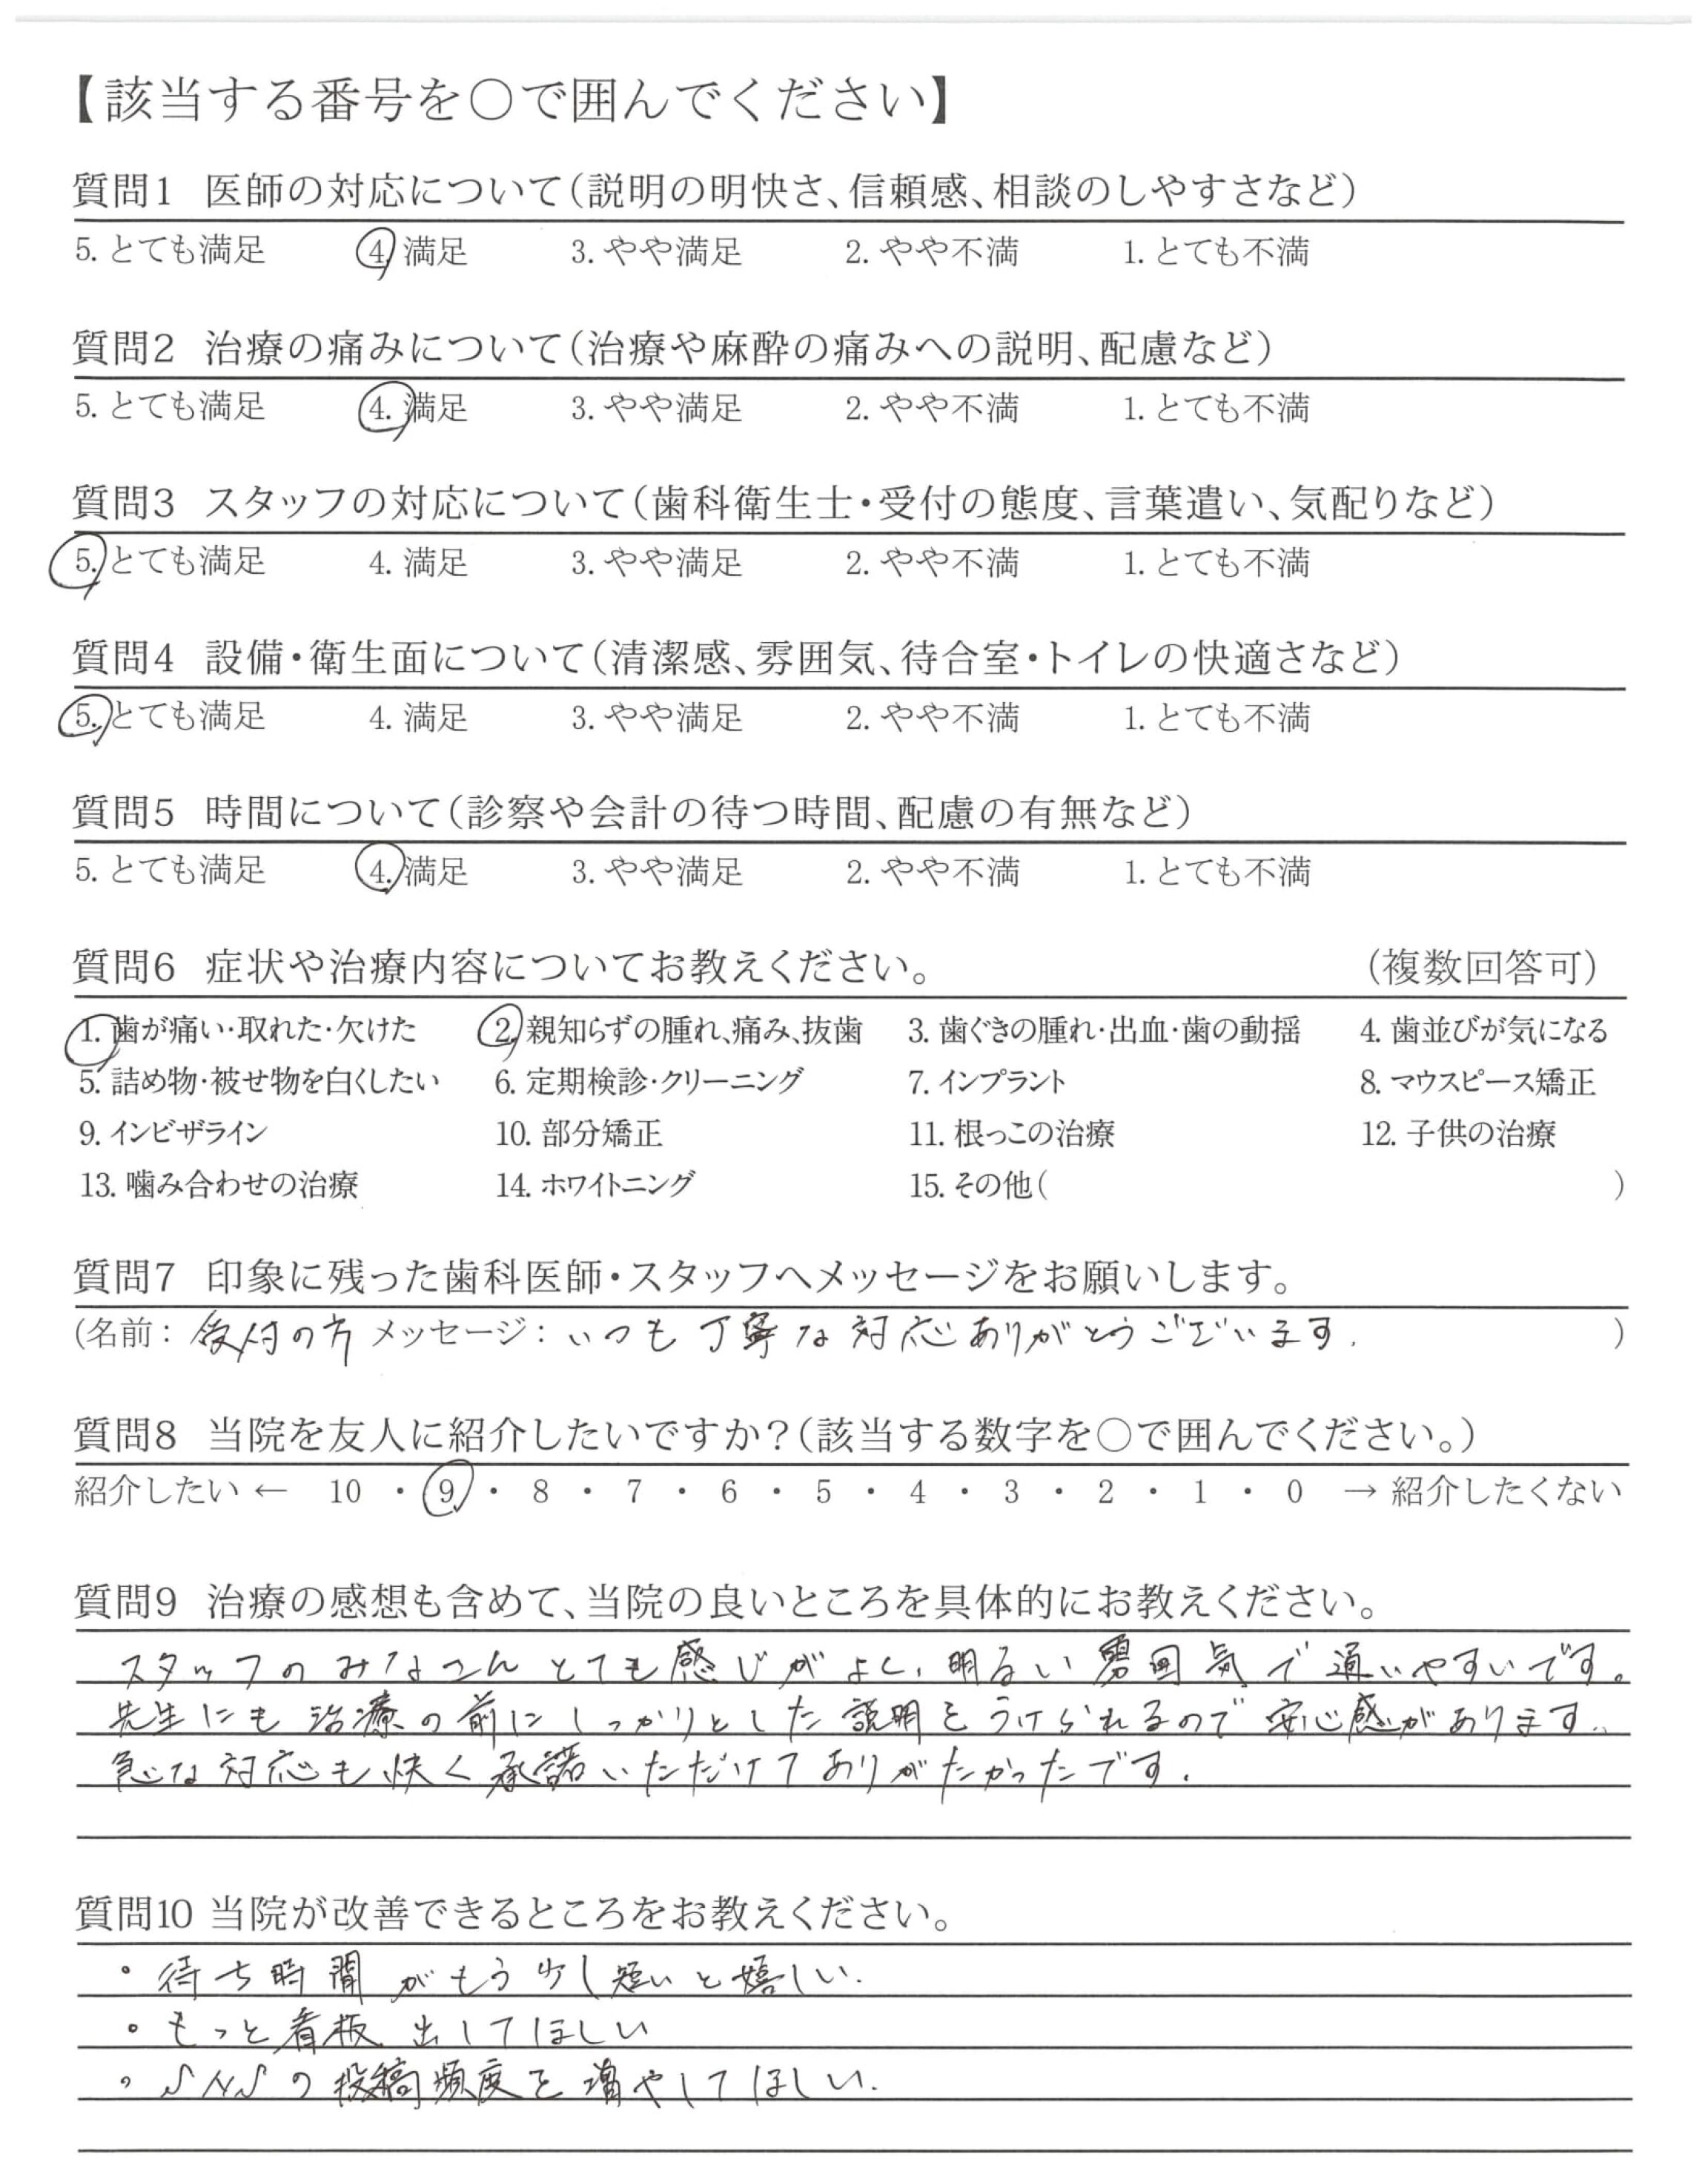 【該当する番号を○で囲んでください】
質問1 医師の対応について(説明の明快さ、信頼感、相談のしやすさなど)
5. とても満足 4. 満足 3. やや満足 2. やや不満 1. とても不満
質問2 治療の痛みについて(治療や麻酔の痛みへの説明、配慮など)
5. とても満足 4. 満足 3. やや満足 2. やや不満 1. とても不満
質問3 スタッフの対応について(歯科衛生士・受付の態度、言葉遣い、気配りなど)
5. とても満足 4. 満足 3. やや満足 2. やや不満 1. とても不満
質問4 設備・衛生面について(清潔感、雰囲気、待合室・トイレの快適さなど)
5. とても満足 4. 満足 3. やや満足 2. やや不満 1. とても不満
質問5 時間について(診察や会計の待つ時間、配慮の有無など)
5. とても満足 4. 満足 3. やや満足 2. やや不満 1. とても不満
質問6 症状や治療内容についてお教えください。 (複数回答可)
1. 歯が痛い・取れた・欠けた 2. 親知らずの腫れ、痛み、抜歯 3. 歯ぐきの腫れ・出血・歯の動揺 4. 歯並びが気になる
5. 詰め物・被せ物を白くしたい 6. 定期検診・クリーニング 7. インプラント 8. マウスピース矯正
9. インビザライン 10. 部分矯正 11. 根っこの治療 12. 子供の治療
13. 噛み合わせの治療 14. ホワイトニング 15. その他( )
質問7 印象に残った歯科医師・スタッフへメッセージをお願いします。
(名前: 受付の方 メッセージ: いつも丁寧な対応ありがとうございます. )
質問8 当院を友人に紹介したいですか?(該当する数字を○で囲んでください。)
紹介したい ← 10 ・ 9 ・ 8 ・ 7 ・ 6 ・ 5 ・ 4 ・ 3 ・ 2 ・ 1 ・ 0 → 紹介したくない
質問9 治療の感想も含めて、当院の良いところを具体的にお教えください。
スタッフのみなさんとても感じがよく、明るい雰囲気で通いやすいです。
先生にも治療の前にしっかりとした説明をうけられるので安心感があります。
急な対応も快く承諾いただけてありがたかったです.
質問10 当院が改善できるところをお教えください。
・待ち時間がもう少し短いと嬉しい.
・もっと看板出してほしい
・SNSの投稿頻度を増やしてほしい.